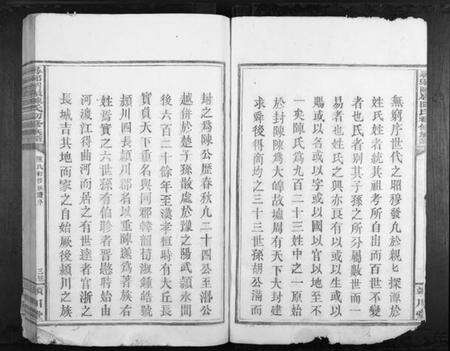 無窮序世代之昭穆發凡於親匕探源於
姓氏姓者統其祖考所自出而百世不變
也氏者别其子孫之所分屬數世而一
易者也姓氏之興亦良有以或以生或以
賜或以名或以字或以國以官以地至不
一矣陳氏爲九百二十三姓中之一原始
於封陳陳爲大皥故墟周有天下大封建
求舜後得商均之三十三世孫胡公滿而
封之爲陳公歷春秋凡二十四公至湣公
越併於楚子孫散處於豫之陽武潁水間
後六百二十餘年至漢孝桓時有大丘長
寔貞天下重名與同郡韓韶荀淑鍾皓號
潁川四長潁川郡名域重陳遂爲著族右
姓焉寔之六世孫有伯眕者晋愍時始由
河渡江得曲河而居之有世達者官浙之
長城吉其地而家之自始厥後潁川之族